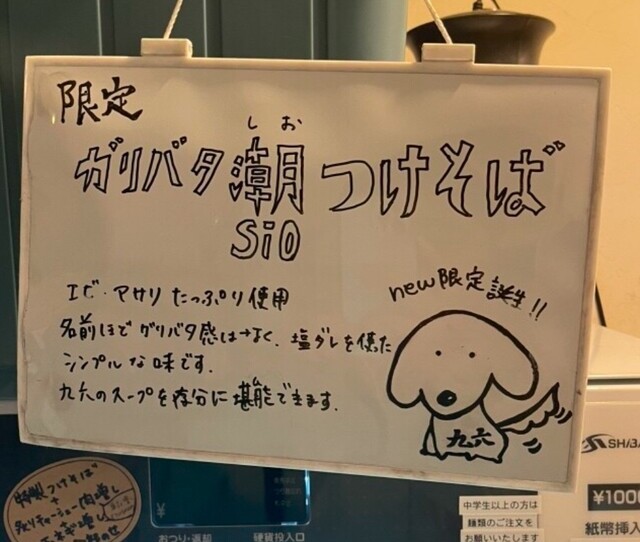 限定
しお
ガリバタ潮つけそば
SiO
エビ・アサリたっぷり使用
名前ほどガリバタ感はなく、塩ダレを使った
シンプルな味です。
九六のスープを存分に堪能できます.
new限定誕生!!
九六
特製つけそば
¥
おつり・返却
硬貨投入口
中学生以上の方は
麺類のご注文を
お願いいたします
SHIBA
¥1000
紙幣挿入